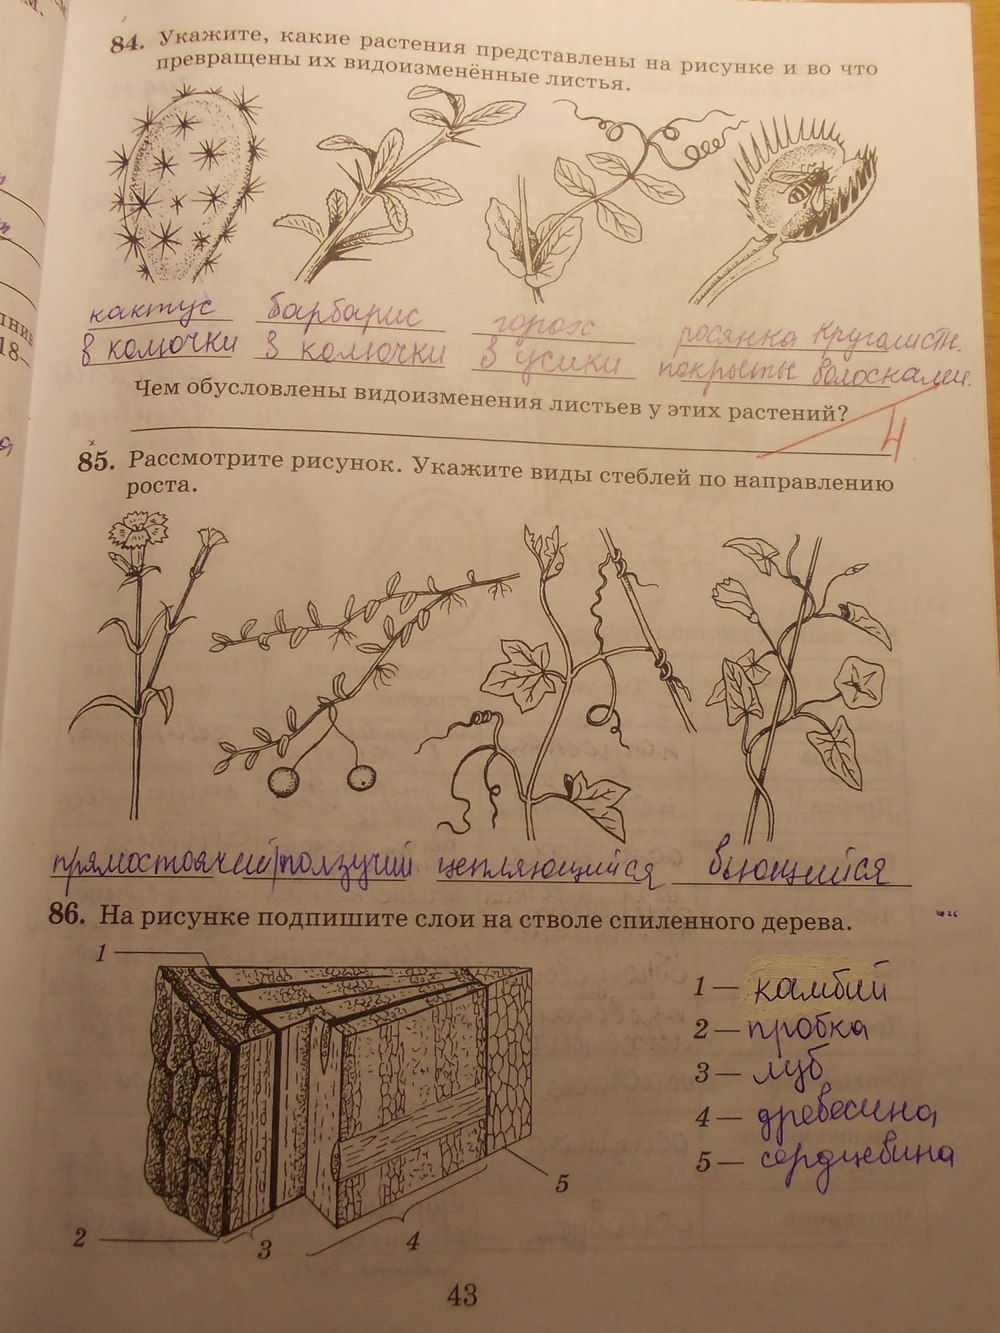 84. Укажите, какие растения представлены на рисунке и во что
превращены их видоизменённые листья.
кактус барбарис горох росянка круглолистн.
в колючки в колючки в усики покрыты волосками.
Чем обусловлены видоизменения листьев у этих растений?
4
85. Рассмотрите рисунок. Укажите виды стеблей по направлению
роста.
прямостоячий ползучий цепляющийся вьющийся
86. На рисунке подпишите слои на стволе спиленного дерева.
1
1 — камбий
2 — пробка
3 — луб
4 — древесина
5 — сердцевина
5
2 3 4
43